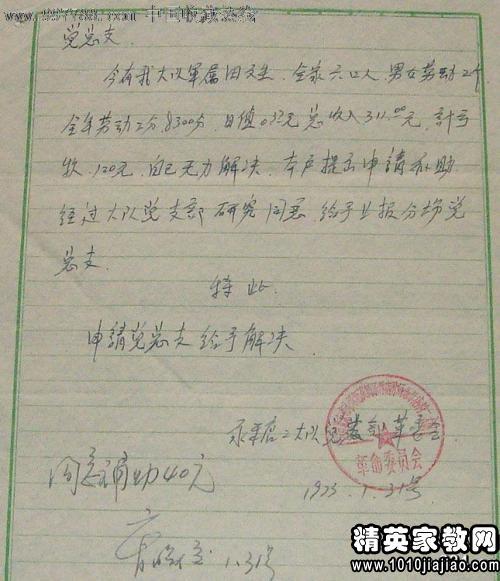 党总支.
今有我大队军属田文生.全家六口人,男女劳动2个
全年劳动工分8300分,日值0.37元总收入311.00元,计亏
款.120元,自己无力解决.本户提出申請补助
经过大队党支部研究同意给予上报分场党
总支.
特此.
申請党总支给予解决.
二大队党支部革委会
革命委员会
1973.1.31号
同意補助40元
1.31号
精英家教网
www.1010jiajiao.com